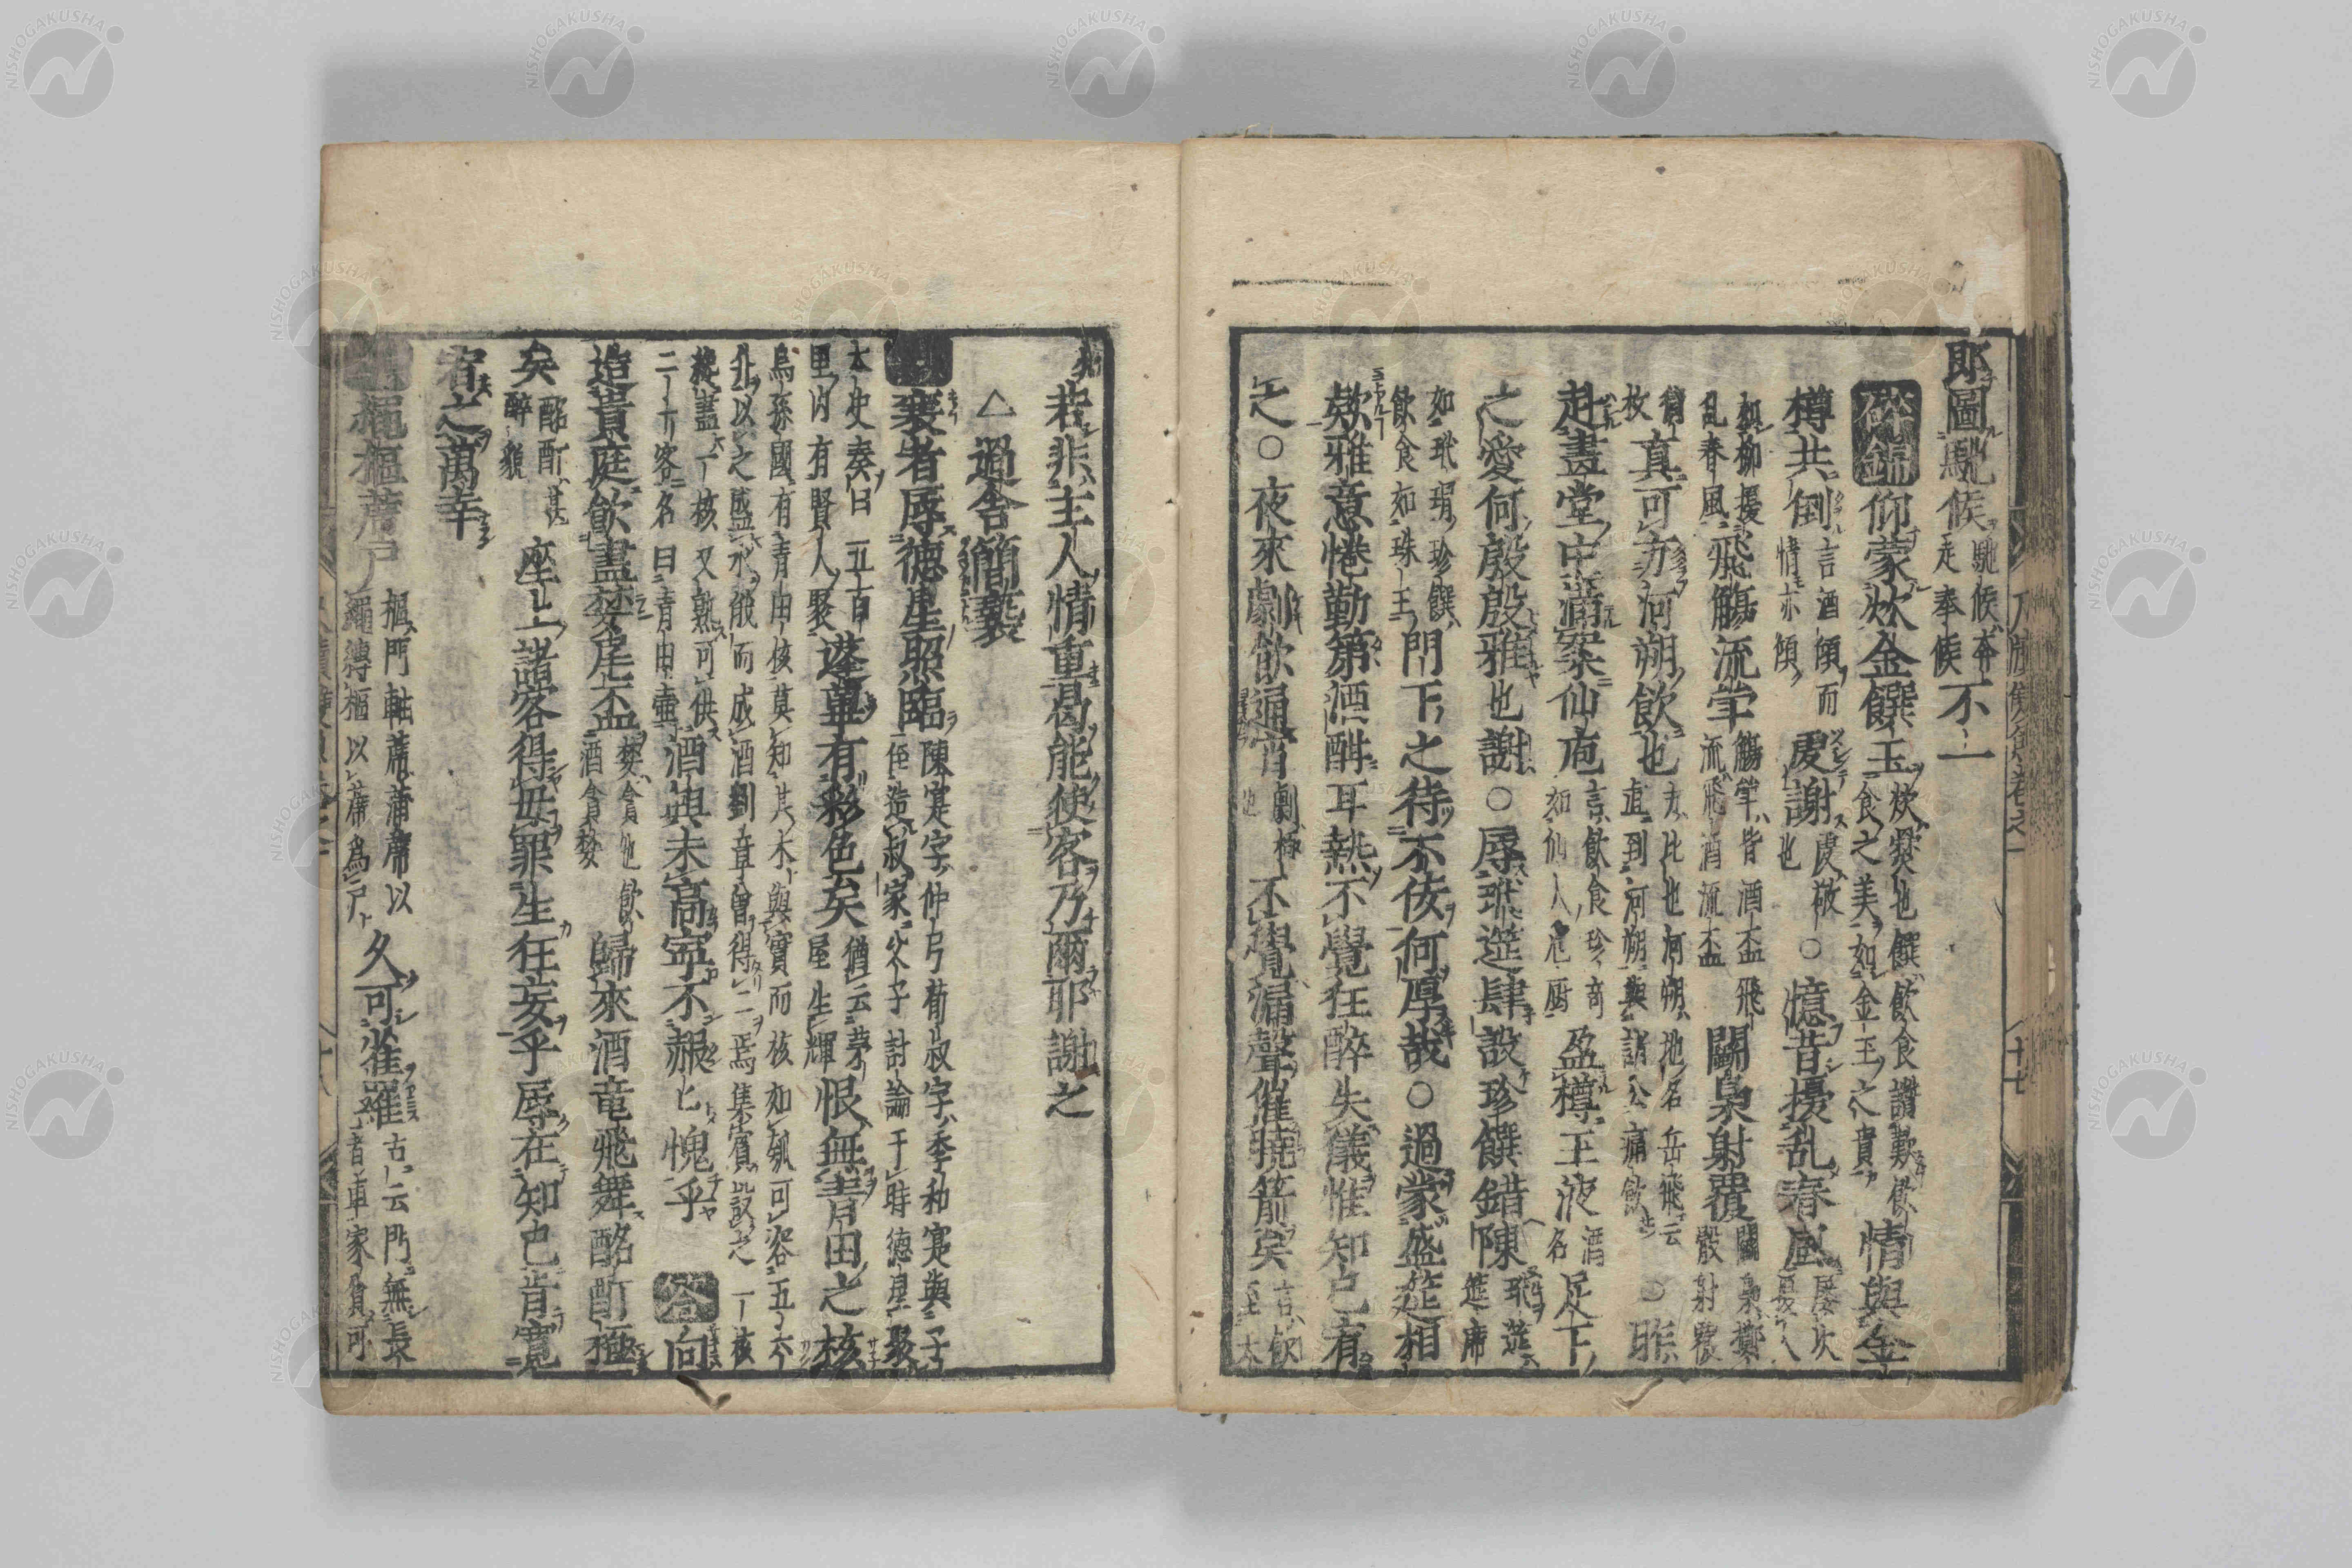 即圖馳候馳候奔走奉候不一
碎錦仰蒙炊金饌玉炊爨也饌飲食謂歎飲食之美如金玉之貴情與金
樽共倒言酒傾而情亦傾虔謝虔敬也○憶昔擾乱春風
攀柳援乱春風飛觴流斝觴斝皆酒盃飛流飛酒流盃鬭梟射覆
真可方河朔飲也方比也河朔地名岳飛云直到河朔與諸公痛飲○昨
赴畫堂中満案仙庖言飲食珍奇如仙人庖厨盈樽玉液酒名足下
之愛何殷殷雅也謝○辱玳筵肆設珍饌錯陳玳筵筵席
如玳瑁珍饌飲食如珠玉門下之待不佞何厚哉○過蒙盛筵相
欵雅意惓勤第酒酣耳熱不覺狂醉失儀惟知已宥
之○夜來劇飲通宵劇極也不覺漏聲催曉箭矣
若非主人情重曷能使客乃爾耶謝之
△過舍簡褻
褻者辱徳星照臨陳寔字仲弓荀叔字季和寔與子侄造叔家父子討論于時德星聚
太史奏曰五百里内有賢人聚蓬蓽有彩色矣猶云茅屋生輝恨無青田之核
烏孫國有青田核莫知其木與實而核如瓠可容五六升以之盛水俄而成酒劉章曽得二焉集賓設之一核
纔盡一核又熟可供二十客名曰青田壺酒與未高寧不赧匕愧乎答向
造貴庭飲盡婪尾盃婪貪也飲酒貪婪歸來酒竜飛舞酩酊極
矣酩酊甚醉貌座上諸客得毋罪生狂妄乎辱在知已肯寛
宥之萬幸
繩樞蓆戸樞門軸蓆蒲蓆以繩縛樞以蓆為戸久可雀羅古云門無長者車家貧可